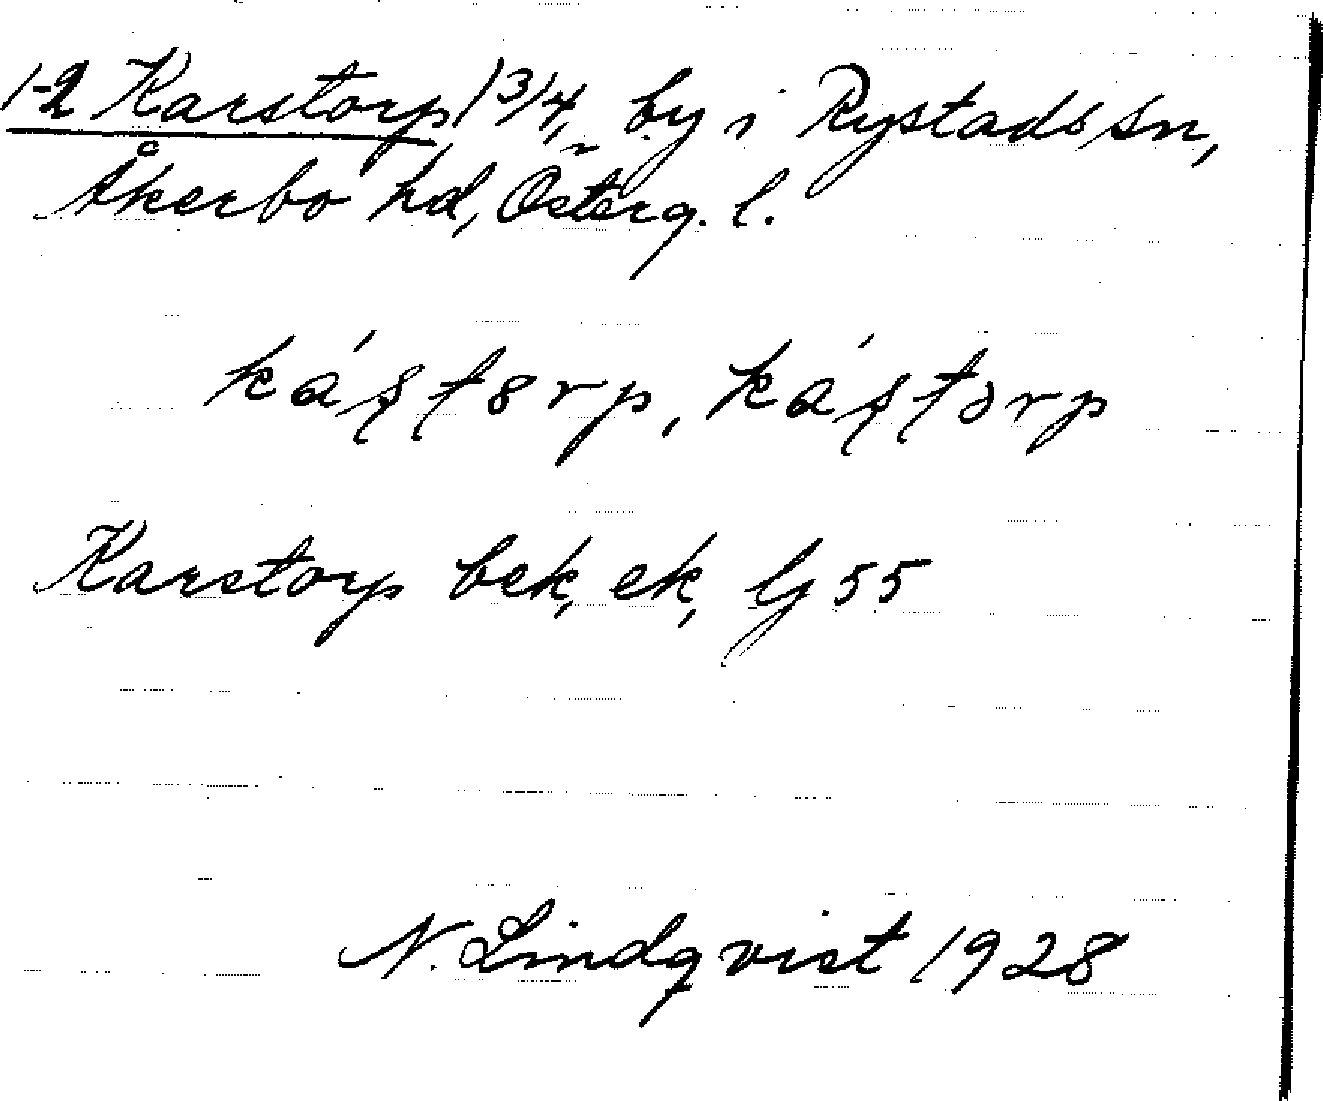 1-2 Karstorp 1 3/4, by i Rystads sn,
Åkerbo hd, Österg. l.
ká̱ʂʈɞrp, ká̱ʂʈɔrp
Karstorp bek, ek, lj 55
N. Lindqvist 1928